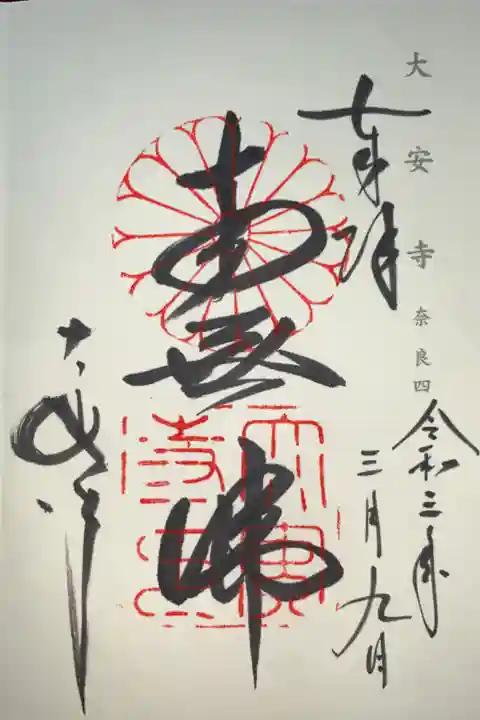 大安寺 奈良四
奉拝
令和三年
三月九日
南無佛
大安寺